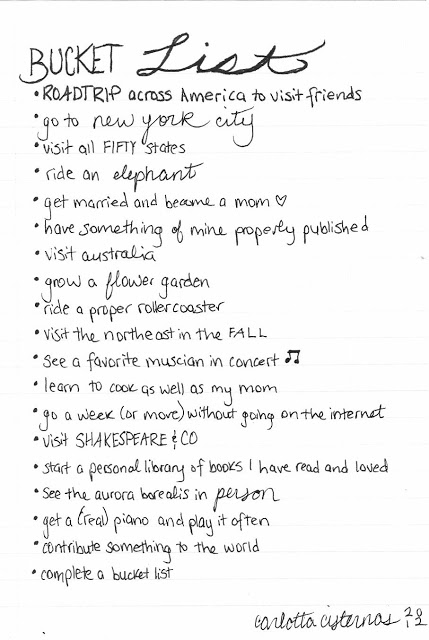 BUCKET List
• ROADTRIP across America to visit friends
• go to new york city
• visit all FIFTY states
• ride an elephant
• get married and become a mom ♡
• have something of mine properly published
• visit australia
• grow a flower garden
• ride a proper rollercoaster
• visit the northeast in the FALL
• see a favorite muscian in concert ♫
• learn to cook as well as my mom
• go a week (or more) without going on the internet
• visit SHAKESPEARE & CO
• start a personal library of books I have read and loved
• see the aurora borealis in person
• get a (real) piano and play it often
• contribute something to the world
• complete a bucket list
carlotta cisternas